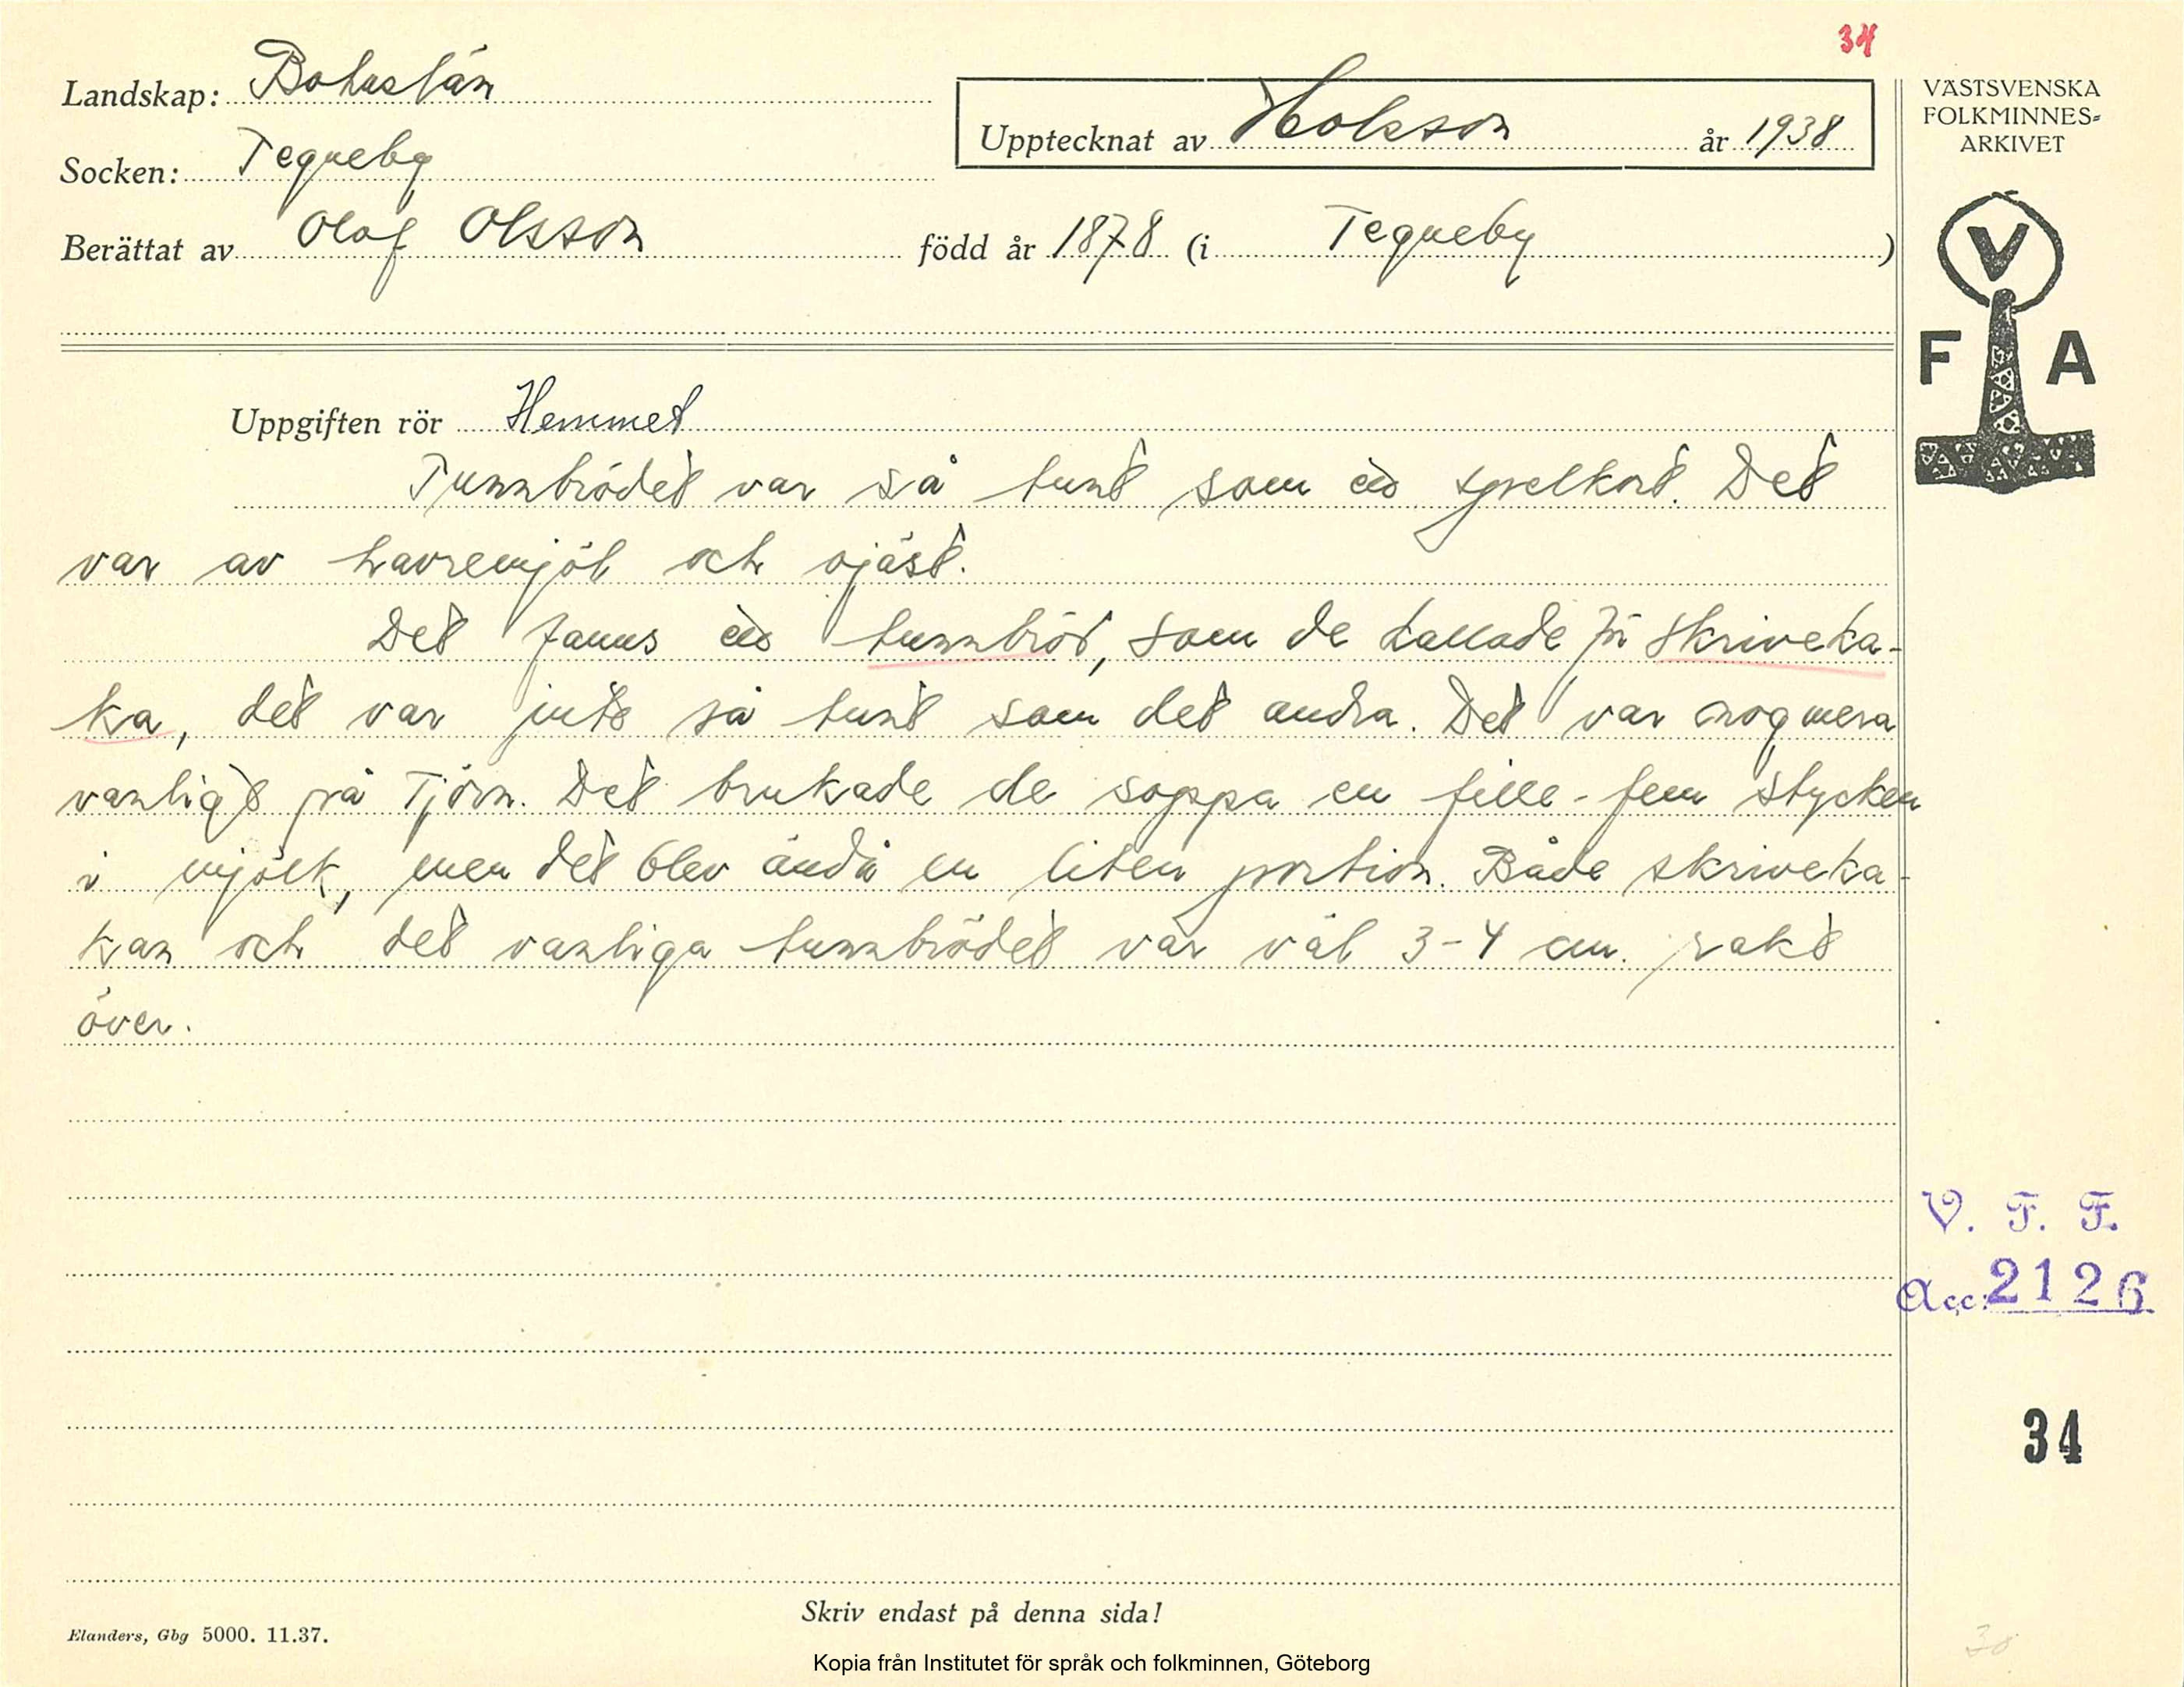 34
Landskap: Bohuslän
Socken: Tegneby
Upptecknat av Holsson år 1938
Berättat av Olof Olsson född år 1878 (i Tegneby )
VÄSTSVENSKA
FOLKMINNES=
ARKIVET
V
F A
Uppgiften rör Hemmet
Tunnbrödet var så tunt som ett spelkort. Det
var av havremjöl och ojäst.
Det fanns ett tunnbröd, som de kallade för skriveka-
ka, det var inte så tunt som det andra. Det var nog mera
vanligt på Tjörn. Det brukade de soppa en fille-fem stycken
i mjölk, men det blev ändå en liten portion. Både skriveka-
kan och det vanliga tunnbrödet var väl 3-4 cm. rakt
över.
V. F. F.
Acc: 2126
34
Skriv endast på denna sida!
Elanders, Gbg 5000. 11.37.
Kopia från Institutet för språk och folkminnen, Göteborg